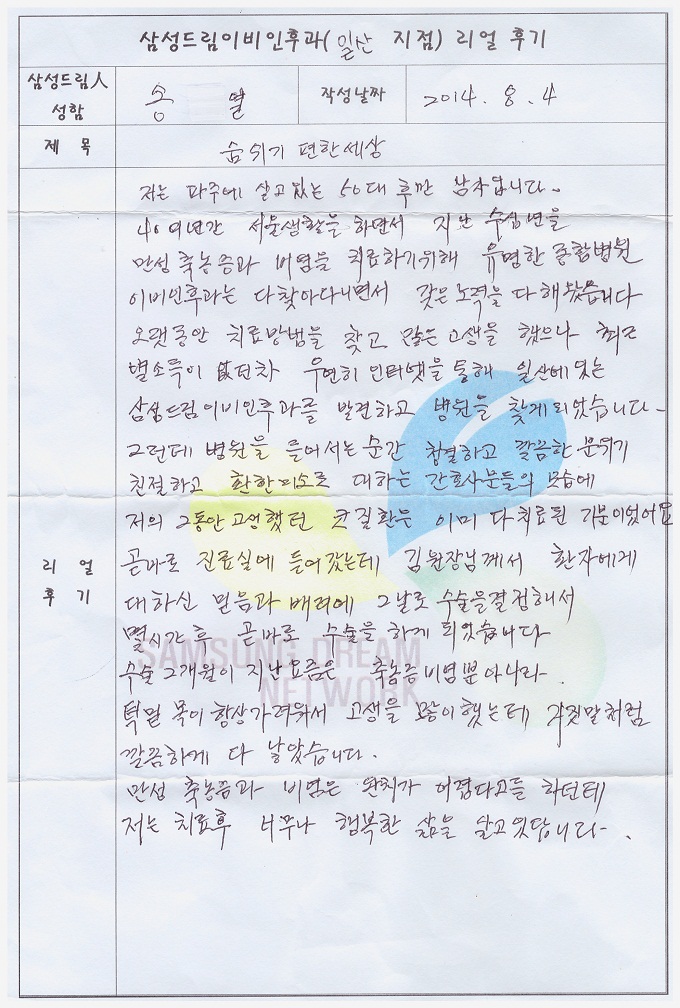 삼성드림이비인후과(일산 지점) 리얼 후기
삼성드림人 성함
송 열
작성날짜
2014. 8. 4
제 목
숨쉬기 편한세상
리 얼 후 기
저는 파주에 살고있는 50대 후반 남자입니다.
40여년간 서울생활을 하면서 지난 수십년을
만성 축농증과 비염을 치료하기위해 유명한 종합병원
이비인후과는 다찾아다니면서 갖은노력을 다 해봤습니다
오랫동안 치료방법을 찾고 많은 고생을 했으나
별소득이 없던차 우연히 인터넷을 통해 일산에 있는
삼성드림이비인후과를 발견하고 병원을 찾게되었습니다-
그런데 병원을 들어서는 순간 청결하고 깔끔한 분위기
친절하고 환한미소로 대하는 간호사분들의 모습에
저의 그동안 고생했던 코질환은 이미 다 치료된 기분이었어요
곧바로 진료실에 들어갔는데 김원장님께서 환자에게
대하신 믿음과 배려에 그날로 수술을결정해서
몇시간 후 곧바로 수술을 하게 되었습니다
수술 2개월이 지난요즘은 축농증 비염뿐아니라.
턱밑 목이 항상가려워서 고생을 많이했는데 거짓말처럼
깔끔하게 다 낳았습니다.
만성 축농증과 비염은 완치가 어렵다고들 하던데
저는 치료후 너무나 행복한 삶을 살고있답니다-.
SAMSUNG DREAM
NETWORK